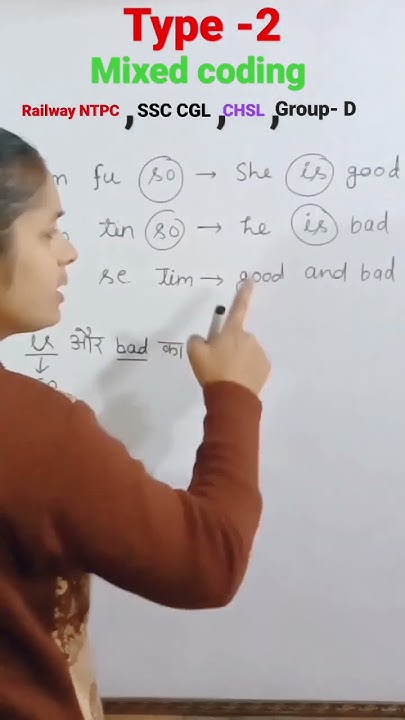 Type -2
Mixed coding
Railway NTPC , SSC CGL ,CHSL ,Group- D
fu so → She is good
tin so → he is bad
se Tim → good and bad
और bad का
↓